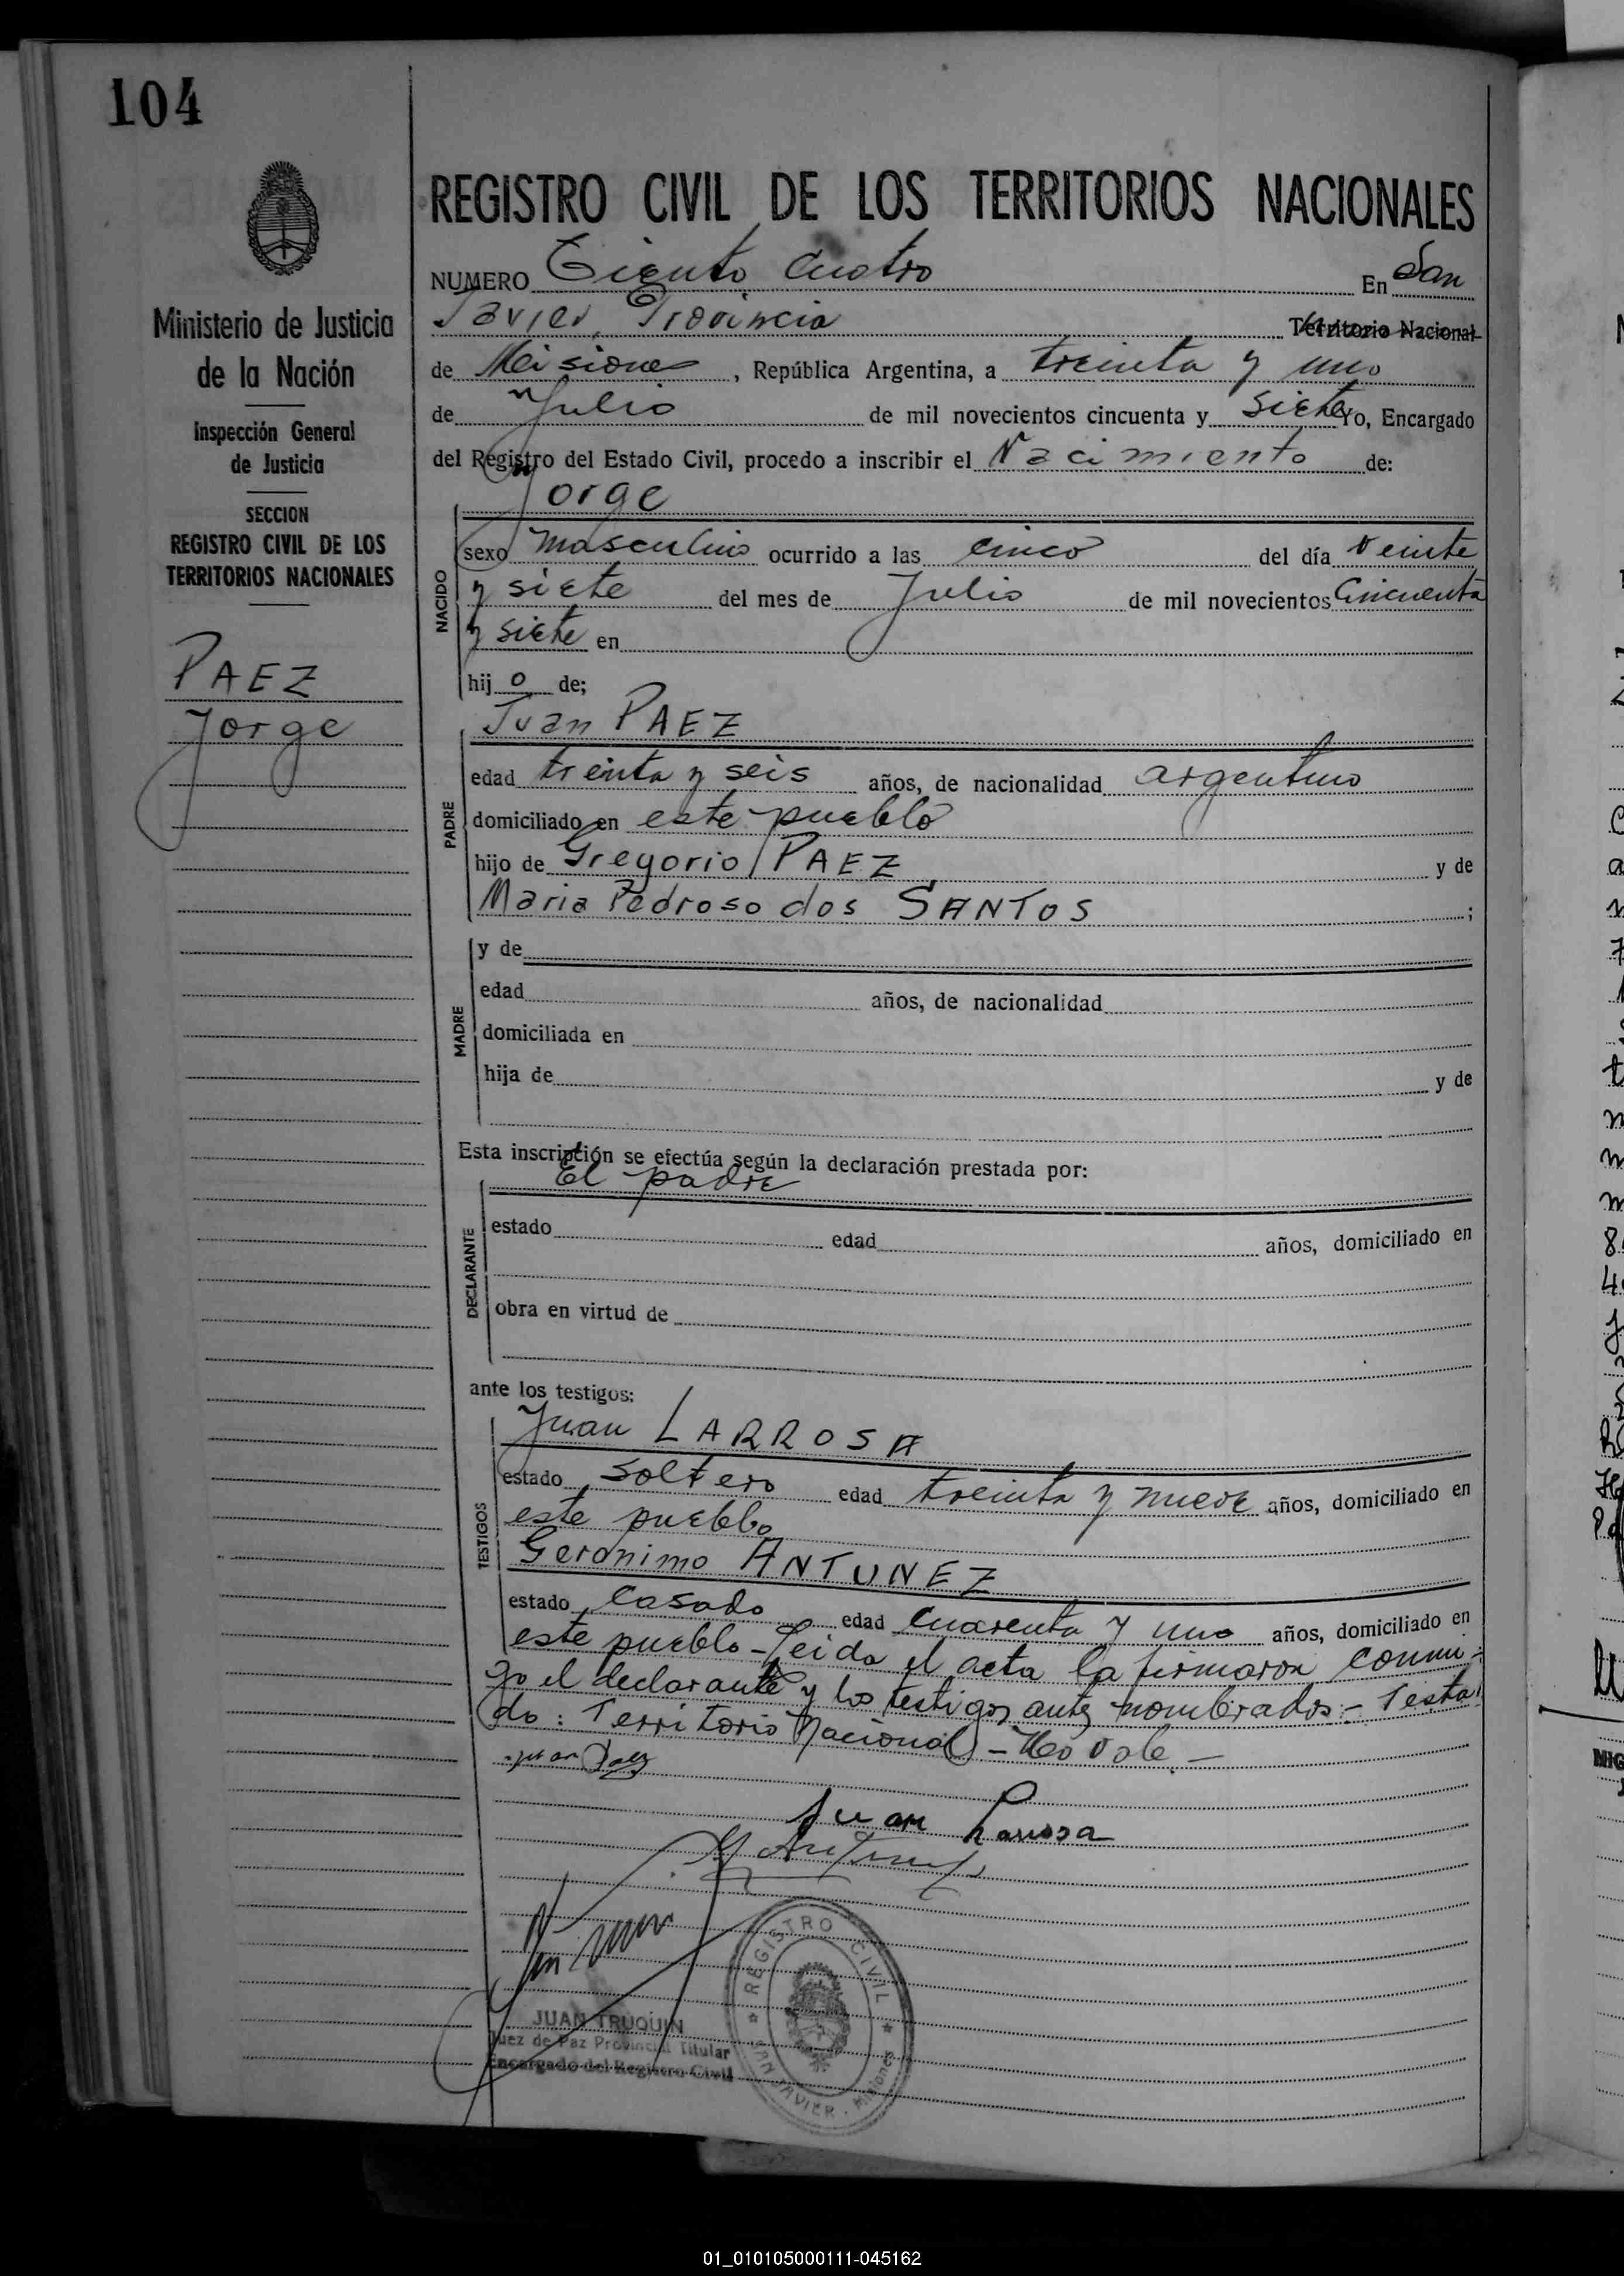 104
REGISTRO CIVIL DE LOS TERRITORIOS NACIONALES
NUMERO Ciento Cuatro En San
Javier, Provincia Territorio Nacional
de Misiones, República Argentina, a treinta y uno
de Julio de mil novecientos cincuenta y siete Yo, Encargado
del Registro del Estado Civil, procedo a inscribir el Nacimiento de:
Jorge
NACIDO
sexo masculino ocurrido a las cinco del día veinte
y siete del mes de Julio de mil novecientos Cincuenta
y siete en
hij o de;
Juan PAEZ
PADRE
edad treinta y seis años, de nacionalidad argentino
domiciliado en este pueblo
hijo de Gregorio PAEZ y de
Maria Pedroso dos SANTOS ;
MADRE
y de
edad años, de nacionalidad
domiciliada en
hija de y de
Esta inscripción se efectúa según la declaración prestada por:
El padre
DECLARANTE
estado edad años, domiciliado en
obra en virtud de
ante los testigos:
Juan LARROSA
TESTIGOS
estado soltero edad treinta y nueve años, domiciliado en
este pueblo
Geronimo ANTUNEZ
estado Casado edad cuarenta y uno años, domiciliado en
este pueblo - Leida el acta la firmaron conmi-
go el declarante y los testigos antes nombrados.- Testa
do: Territorio Nacional - No vale -
Juan Paez
Juan Larrosa
G Antunez
JUAN TRUQUIN
Juez de Paz Provincial Titular
Encargado del Registro Civil
REGISTRO CIVIL
SAN JAVIER - Misiones
Ministerio de Justicia
de la Nación
Inspección General
de Justicia
SECCION
REGISTRO CIVIL DE LOS
TERRITORIOS NACIONALES
PAEZ
Jorge
01_010105000111-045162